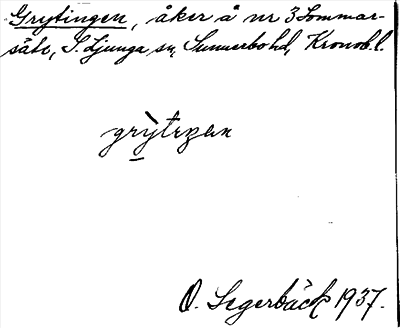 Grytingen, åker å nr 3 Sommar-
säte, S. Ljunga sn, Sunnerbo hd, Kronob. l.
grỳtıŋen
O. Segerbäck 1937.